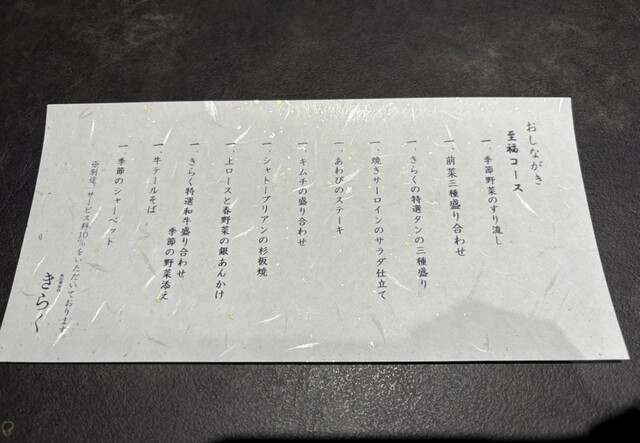 おしながき
至福コース
一、季節野菜のすり流し
一、前菜三種盛り合わせ
一、きらくの特選タンの三種盛り
一、焼きサーロインのサラダ仕立て
一、あわびのステーキ
一、キムチの盛り合わせ
一、シャトーブリアンの杉板焼
一、上ロースと春野菜の銀あんかけ
一、きらく特選和牛盛り合わせ
季節の野菜添え
一、牛テールそば
一、季節のシャーベット
※別途、サービス料10%をいただいております
きらく